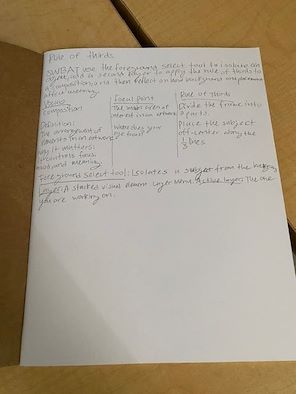 Rule of thirds
SWBAT use the foreground select tool to isolate an
object, add a second layer to apply the rule of thirds to
a composition, and then reflect on how background and placement
affect meaning.
Focus
composition
Definition:
The arrangement of
elements in an artwork
why it matters:
it controls focus,
mood, and meaning.
Focal Point
The main area of
interest in an artwork
where does your
eye travel?
Rule of Thirds
Divide the frame into
3 parts.
Place the subject
off-center along the
1/3 lines
Foreground select tool: Isolates a subject from the
Layer: A stacked visual element Layer menu. Active layer: The one
you are working on.